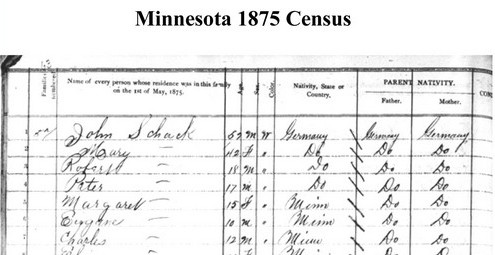 Minnesota 1875 Census
Name of every person whose residence was in this family on the 1st of May, 1875. Age. Sex. Color Nativity, State or Country. PARENT NATIVITY.
Father. Mother.
John Schack 52 M W Germany Germany Germany
Mary 42 F " Do Do Do
Robert 18 M " Do Do Do
Peter 17 M " Do Do Do
Margaret 15 F " Minn Do Do
Eugene 10 M " Minn Do Do
Charles 12 M " Minn Do Do